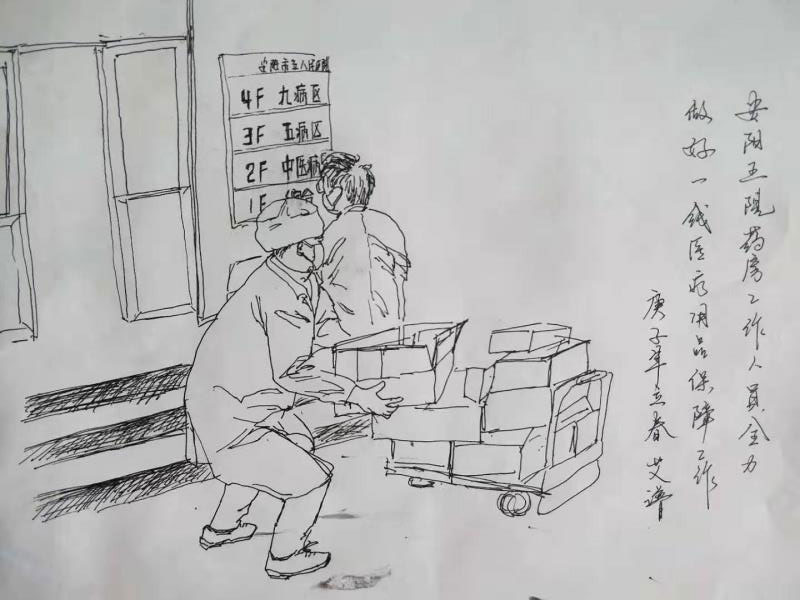 安阳市五人民医院
4F 九病区
3F 五病区
2F 中医病
1F
安阳五院药房工作人员全力
做好一线医疗用品保障工作
庚子年立春 艾谱